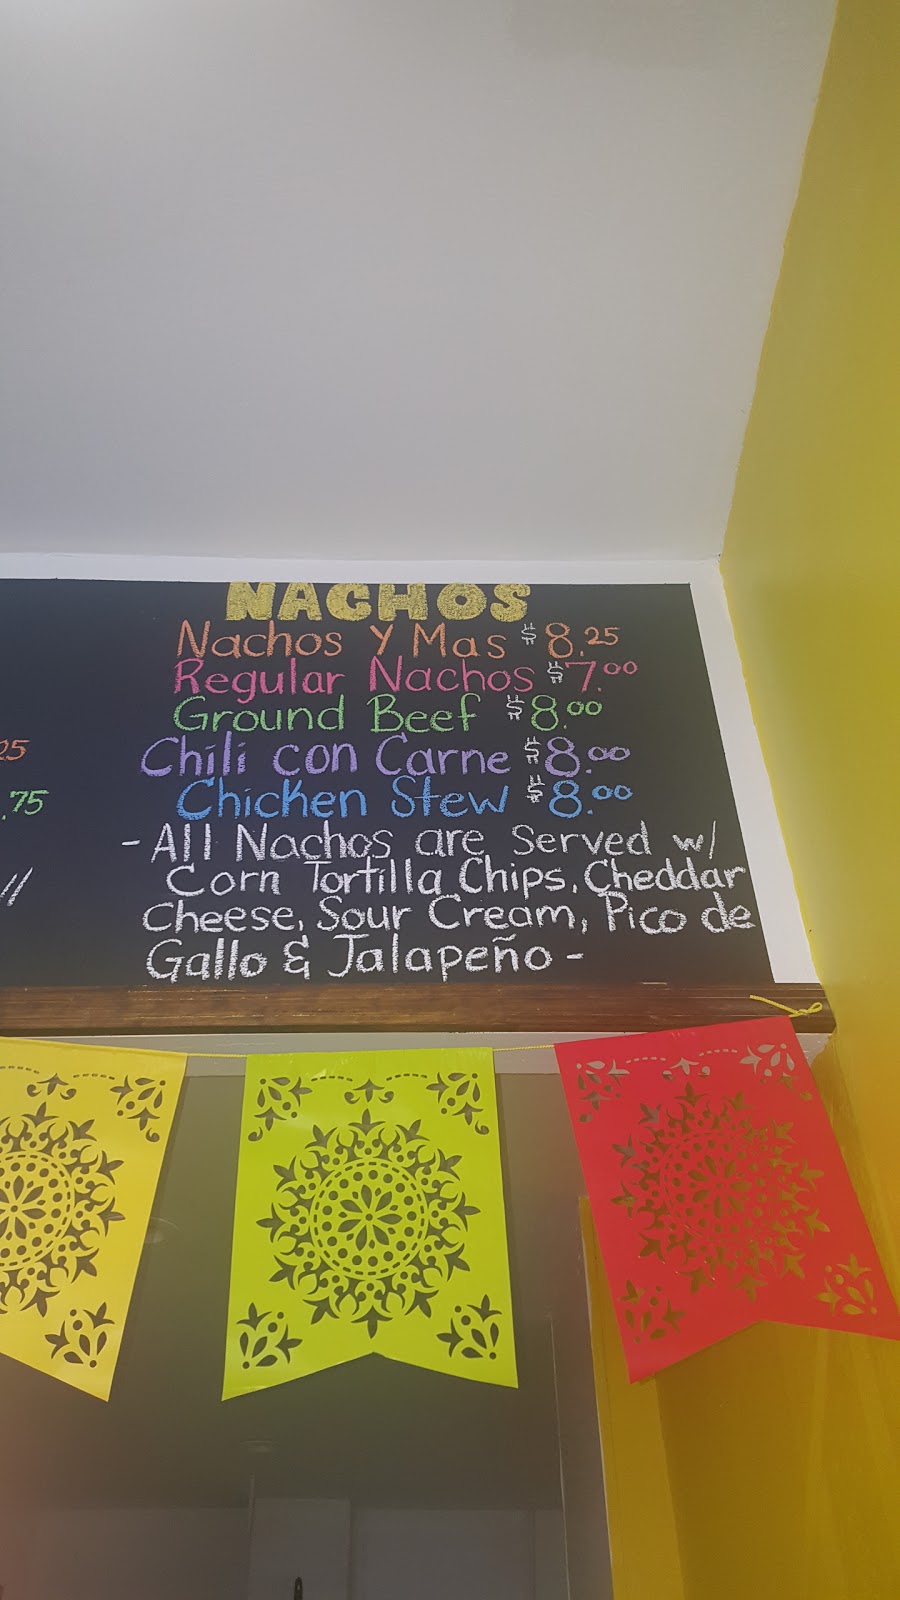 NACHOS
Nachos y Mas $8.25
Regular Nachos $7.00
Ground Beef $8.00
Chili con Carne $8.00
Chicken Stew $8.00
- All Nachos are Served w/
Corn Tortilla Chips, Cheddar
Cheese, Sour Cream, Pico de
Gallo & Jalapeño -
25
.75